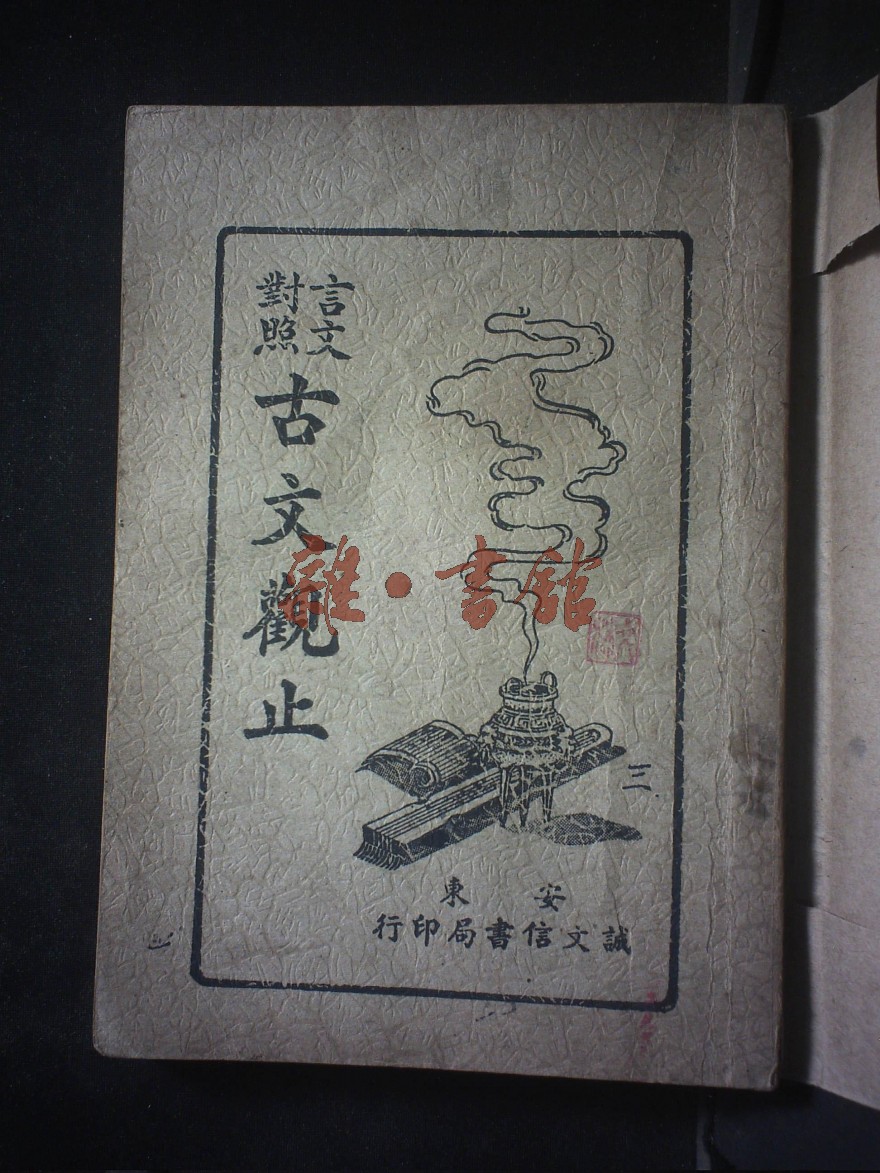 言文
對照
古文觀止
三
安東
誠文信書局印行
雜·書館